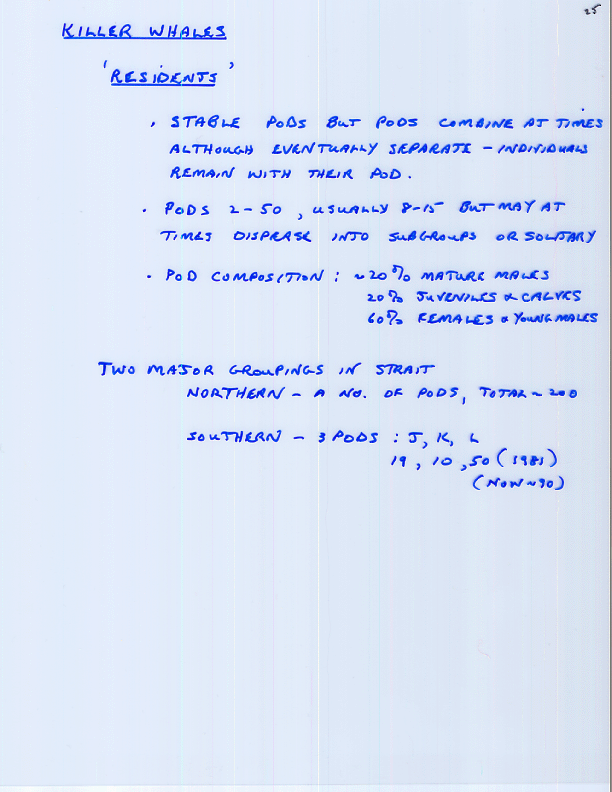 25
KILLER WHALES
'RESIDENTS'
· STABLE PODS BUT PODS COMBINE AT TIMES
ALTHOUGH EVENTUALLY SEPARATE - INDIVIDUALS
REMAIN WITH THEIR POD.
· PODS 2-50, USUALLY 8-15 BUT MAY AT
TIMES DISPRASE INTO SUBGROUPS OR SOLITARY
· POD COMPOSITION : ~20% MATURE MALES
20% JUVENILES & CALVES
60% FEMALES & YOUNG MALES
TWO MAJOR GROUPINGS IN STRAIT
NORTHERN - A NO. OF PODS, TOTAL ~ 200
SOUTHERN - 3 PODS : J, K, L
19, 10, 50 (1981)
(NOW ~90)